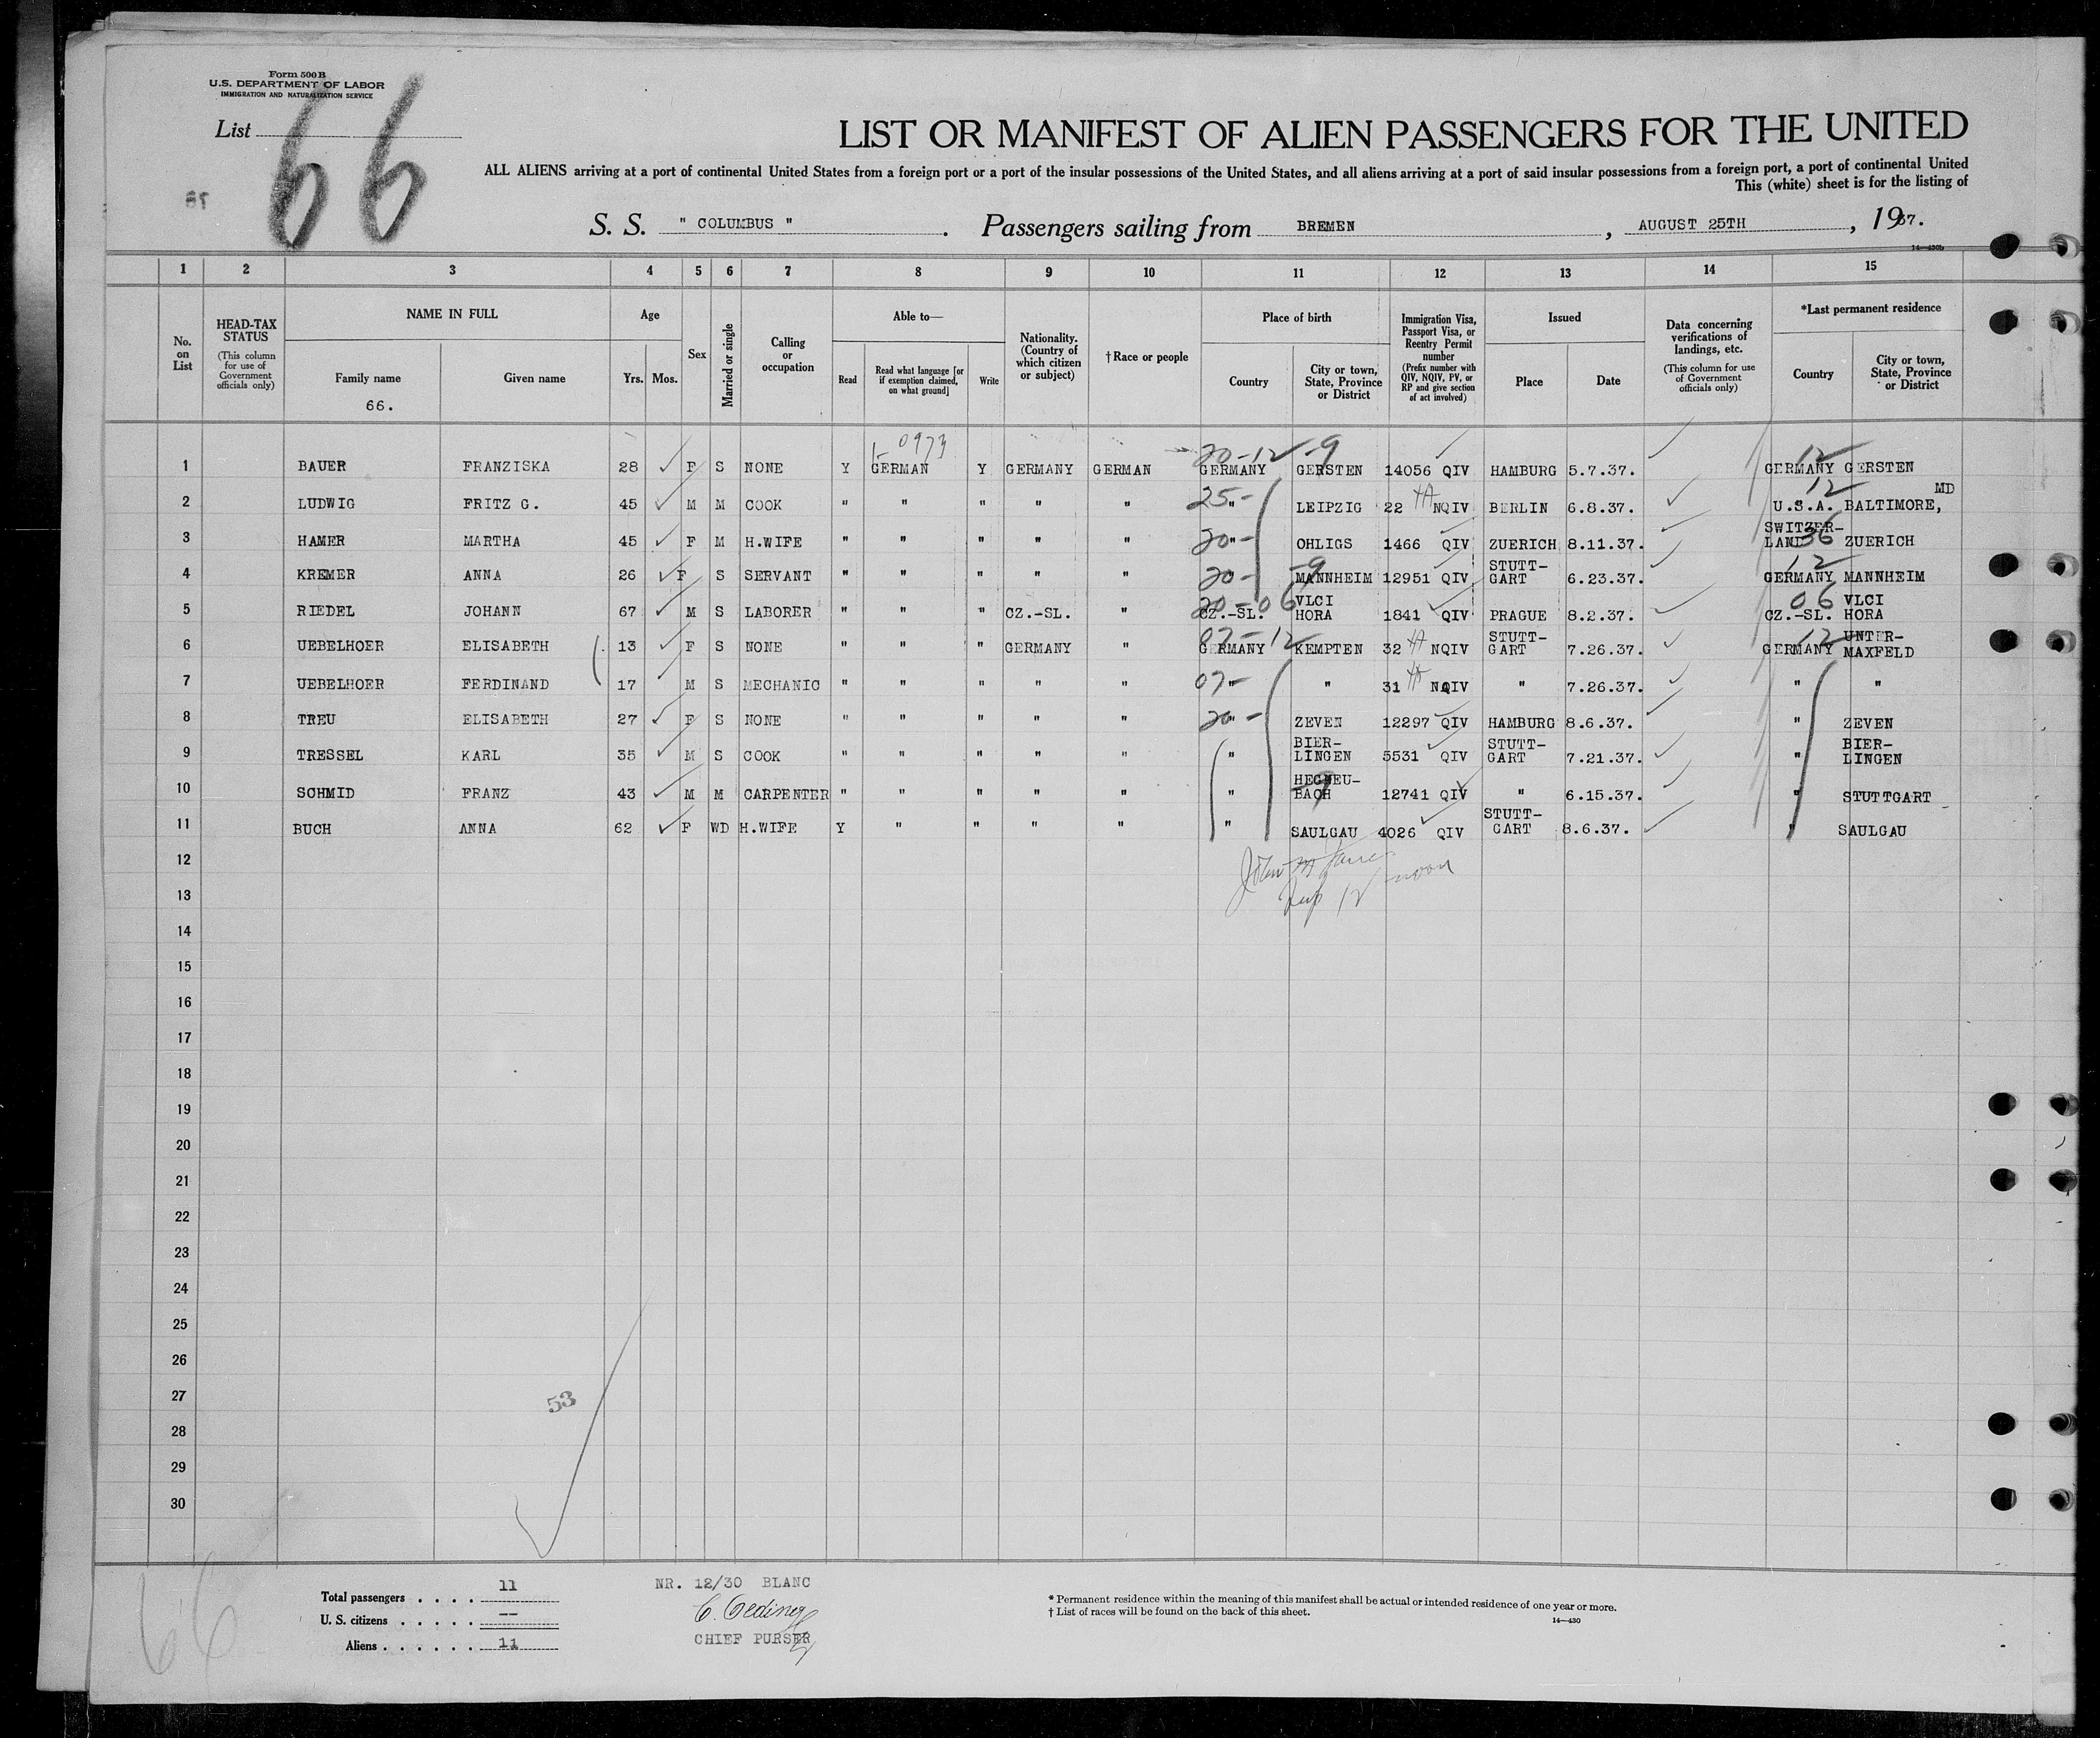 Form 500 B
U.S. DEPARTMENT OF LABOR
IMMIGRATION AND NATURALIZATION SERVICE
List 66
LIST OR MANIFEST OF ALIEN PASSENGERS FOR THE UNITED
ALL ALIENS arriving at a port of continental United States from a foreign port or a port of the insular possessions of the United States, and all aliens arriving at a port of said insular possessions from a foreign port, a port of continental United
This (white) sheet is for the listing of
S. S. " COLUMBUS " . Passengers sailing from BREMEN , AUGUST 25TH , 1937.
14—430b
1 2 3 4 5 6 7 8 9 10 11 12 13 14 15
No. on List
HEAD-TAX STATUS (This column for use of Government officials only)
NAME IN FULL
Family name Given name
66.
Age
Yrs. Mos.
Sex
Married or single
Calling or occupation
Able to—
Read Read what language [or if exemption claimed, on what ground] Write
Nationality. (Country of which citizen or subject)
†Race or people
Place of birth
Country City or town, State, Province or District
Immigration Visa, Passport Visa, or Reentry Permit number (Prefix number with QIV, NQIV, PV, or RP and give section of act involved)
Issued
Place Date
Data concerning verifications of landings, etc. (This column for use of Government officials only)
*Last permanent residence
Country City or town, State, Province or District
0973
20-12 -9 12
1 BAUER FRANZISKA 28 F S NONE Y GERMAN Y GERMANY GERMAN GERMANY GERSTEN 14056 QIV HAMBURG 5.7.37. GERMANY GERSTEN
25- 12
2 LUDWIG FRITZ G. 45 M M COOK " " " " " " LEIPZIG 22 NQIV BERLIN 6.8.37. U.S.A. BALTIMORE, MD
20- 36
3 HAMER MARTHA 45 F M H.WIFE " " " " " " OHLIGS 1466 QIV ZUERICH 8.11.37. SWITZER-LAND ZUERICH
20- -9 12
4 KREMER ANNA 26 F S SERVANT " " " " " MANNHEIM 12951 QIV STUTT-GART 6.23.37. GERMANY MANNHEIM
20-06 06
5 RIEDEL JOHANN 67 M S LABORER " " " CZ.-SL. " CZ.-SL. VLCI HORA 1841 QIV PRAGUE 8.2.37. CZ.-SL. VLCI HORA
07-12 12
6 UEBELHOER ELISABETH 13 F S NONE " " " GERMANY " GERMANY KEMPTEN 32 NQIV STUTT-GART 7.26.37. GERMANY UNTER-MAXFELD
07-
7 UEBELHOER FERDINAND 17 M S MECHANIC " " " " " " " 31 NQIV " 7.26.37. " "
20-
8 TREU ELISABETH 27 F S NONE " " " " " " ZEVEN 12297 QIV HAMBURG 8.6.37. " ZEVEN
9 TRESSEL KARL 35 M S COOK " " " " " " BIER-LINGEN 5531 QIV STUTT-GART 7.21.37. " BIER-LINGEN
10 SCHMID FRANZ 43 M M CARPENTER " " " " " " 12741 QIV " 6.15.37. " STUTTGART
11 BUCH ANNA 62 F WD H.WIFE Y " " " " " SAULGAU 4026 QIV STUTT-GART 8.6.37. " SAULGAU
12
noon
13
14
15
16
17
18
19
20
21
22
23
24
25
26
27
53
28
29
30
66
Total passengers . . . . 11
U. S. citizens . . . . . —
Aliens . . . . . . 11
NR. 12/30 BLANC
CHIEF PURSER
* Permanent residence within the meaning of this manifest shall be actual or intended residence of one year or more.
† List of races will be found on the back of this sheet.
14—430